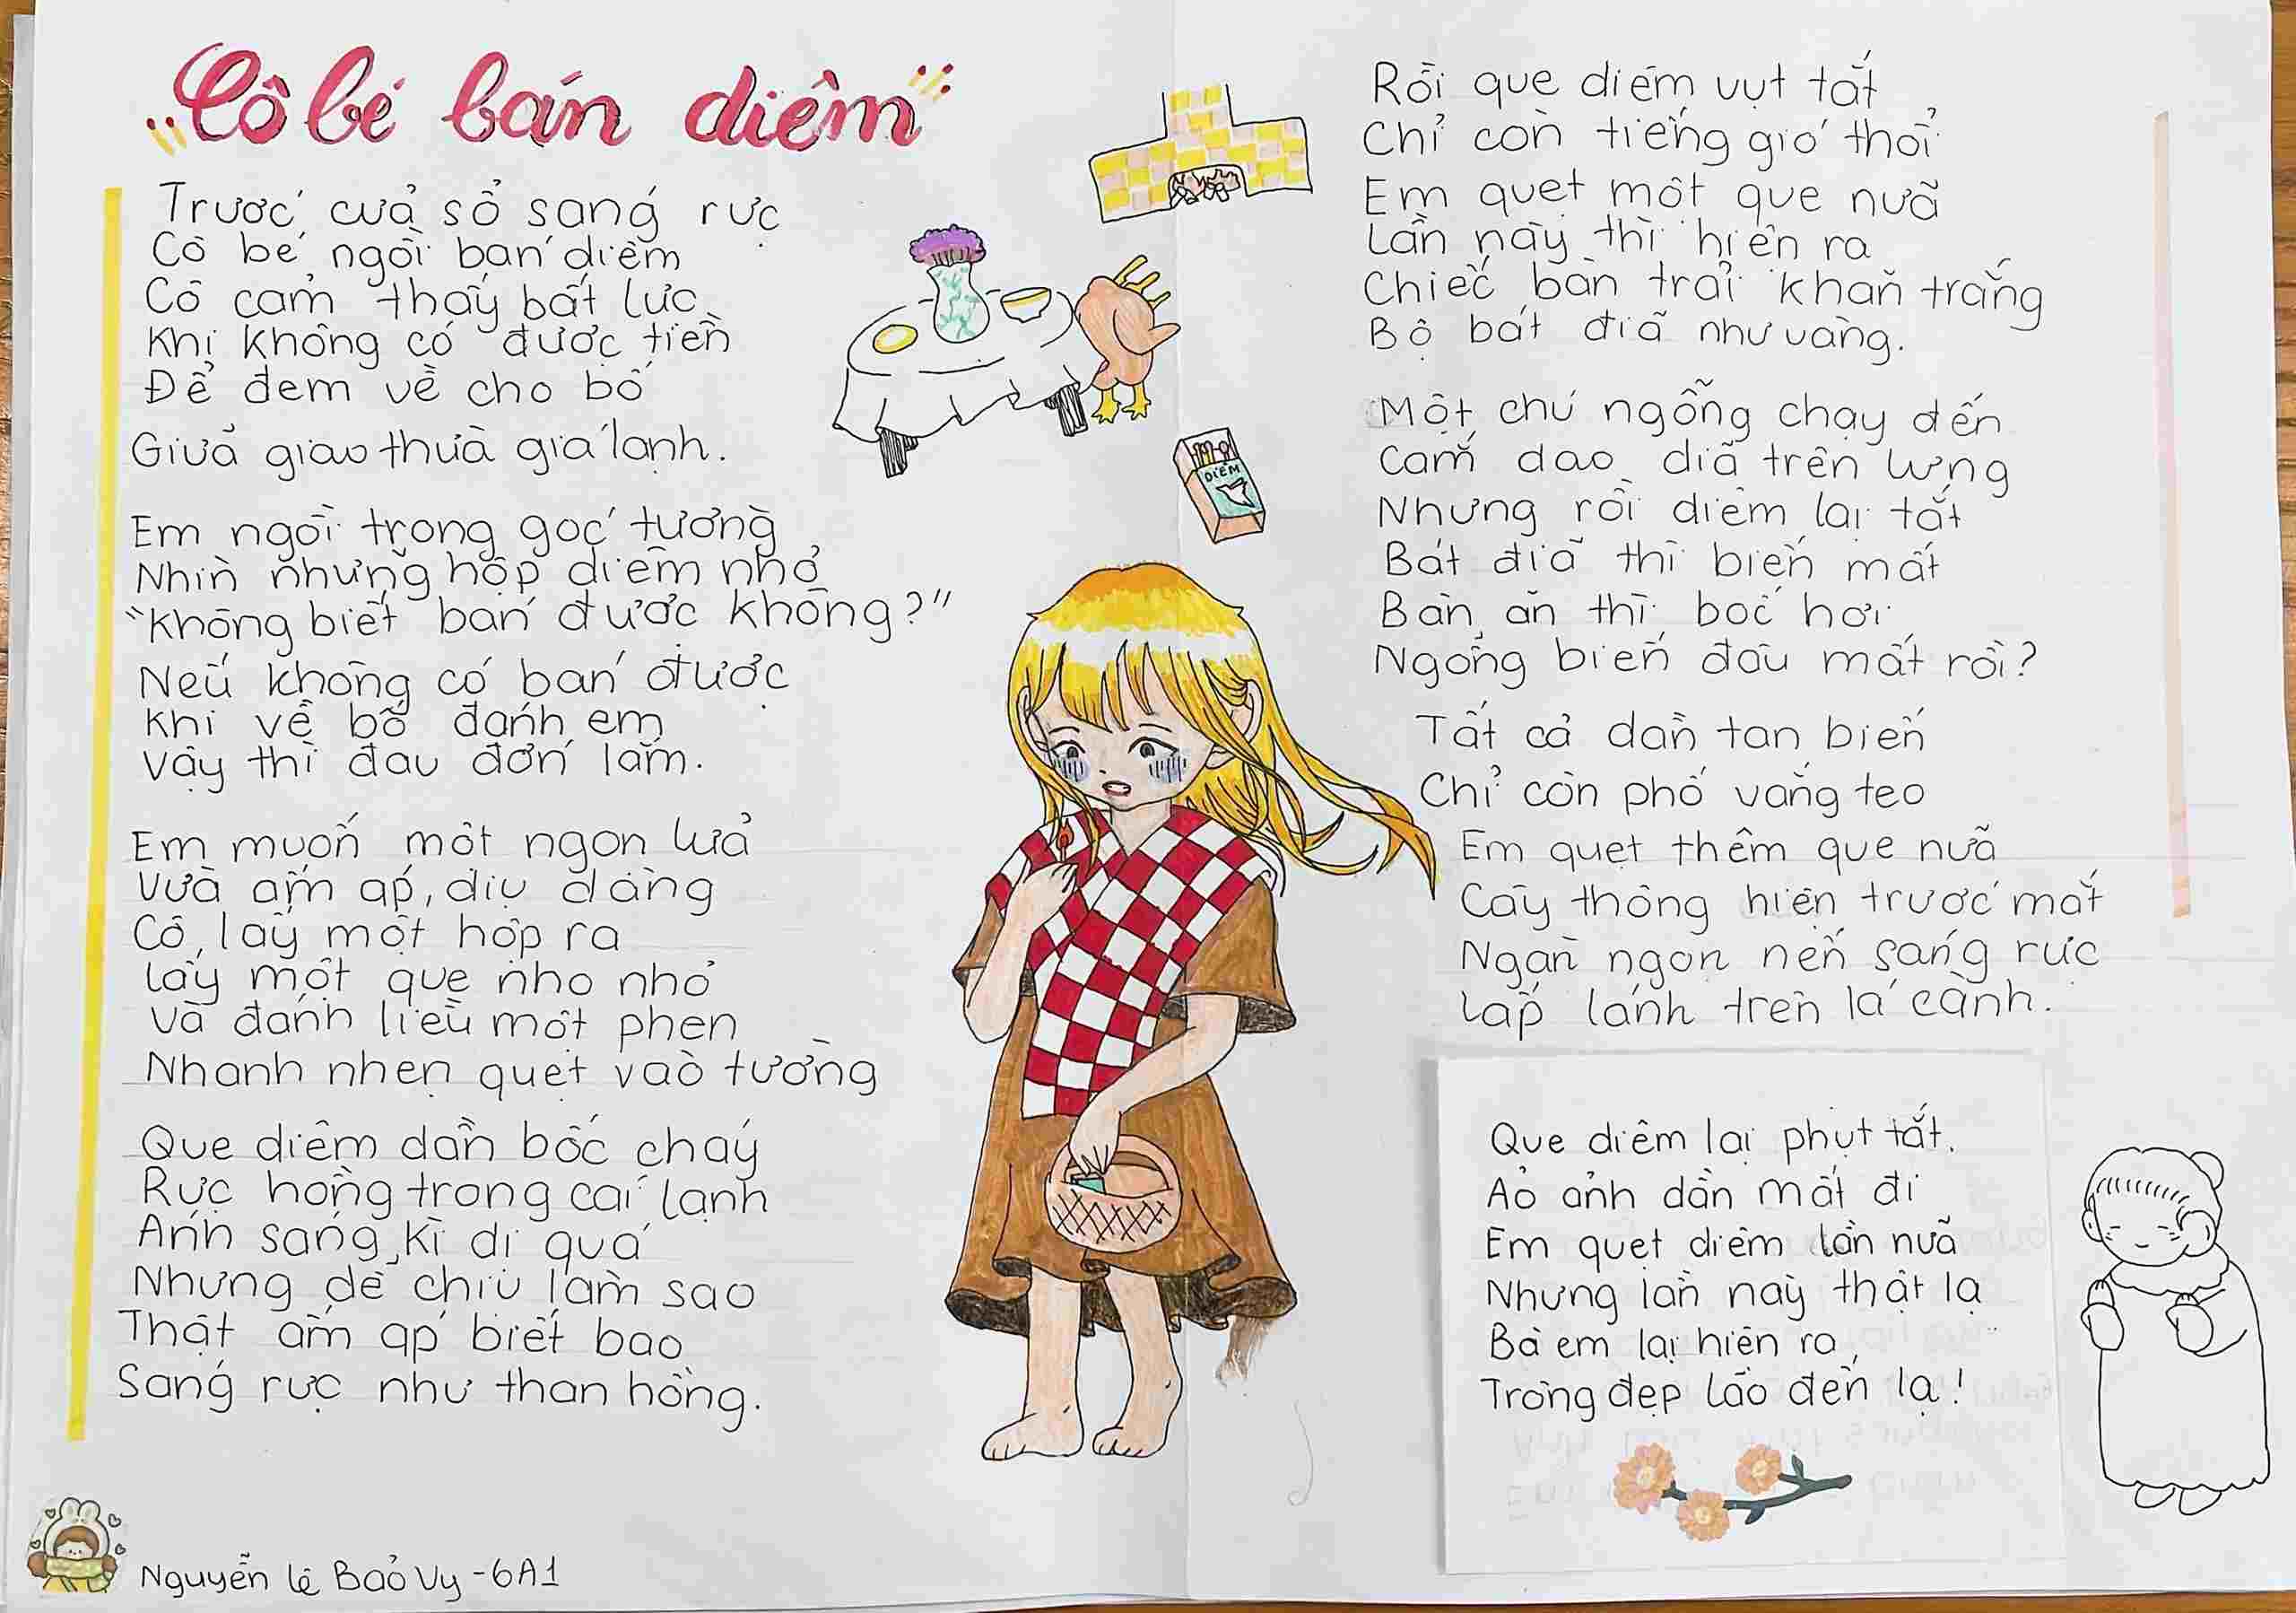 Cô bé bán diêm
Trước cửa sổ sáng rực
Cô bé ngồi bán diêm
Cô cảm thấy bất lực
Khi không có được tiền
Để đem về cho bố
Giữa giao thừa giá lạnh.
Em ngồi trong góc tường
Nhìn những hộp diêm nhỏ
"Không biết bán được không?"
Nếu không có bán được
Khi về bố đánh em
Vậy thì đau đớn lắm.
Em muốn một ngọn lửa
Vừa ấm áp, dịu dàng
Cô lấy một hộp ra
Lấy một que nho nhỏ
Và đánh liều một phen
Nhanh nhẹn quẹt vào tường
Que diêm dần bốc cháy
Rực hồng trong cái lạnh
Ánh sáng kì dị quá
Nhưng dễ chịu làm sao
Thật ấm áp biết bao
Sáng rực như than hồng.
Nguyễn Lê Bảo Vy - 6A1
DIÊM
Rồi que diêm vụt tắt
Chỉ còn tiếng gió thổi
Em quẹt một que nữa
Lần này thì hiện ra
Chiếc bàn trải khăn trắng
Bộ bát đĩa như vàng.
Một chú ngỗng chạy đến
Cắm dao dĩa trên lưng
Nhưng rồi diêm lại tắt
Bát đĩa thì biến mất
Bàn ăn thì bốc hơi
Ngỗng biến đâu mất rồi?
Tất cả dần tan biến
Chỉ còn phố vắng teo
Em quẹt thêm que nữa
Cây thông hiện trước mắt
Ngàn ngọn nến sáng rực
Lấp lánh trên lá cành.
Que diêm lại phụt tắt.
Ảo ảnh dần mất đi
Em quẹt diêm lần nữa
Nhưng lần này thật lạ
Bà em lại hiện ra,
Trông đẹp lão đến lạ!